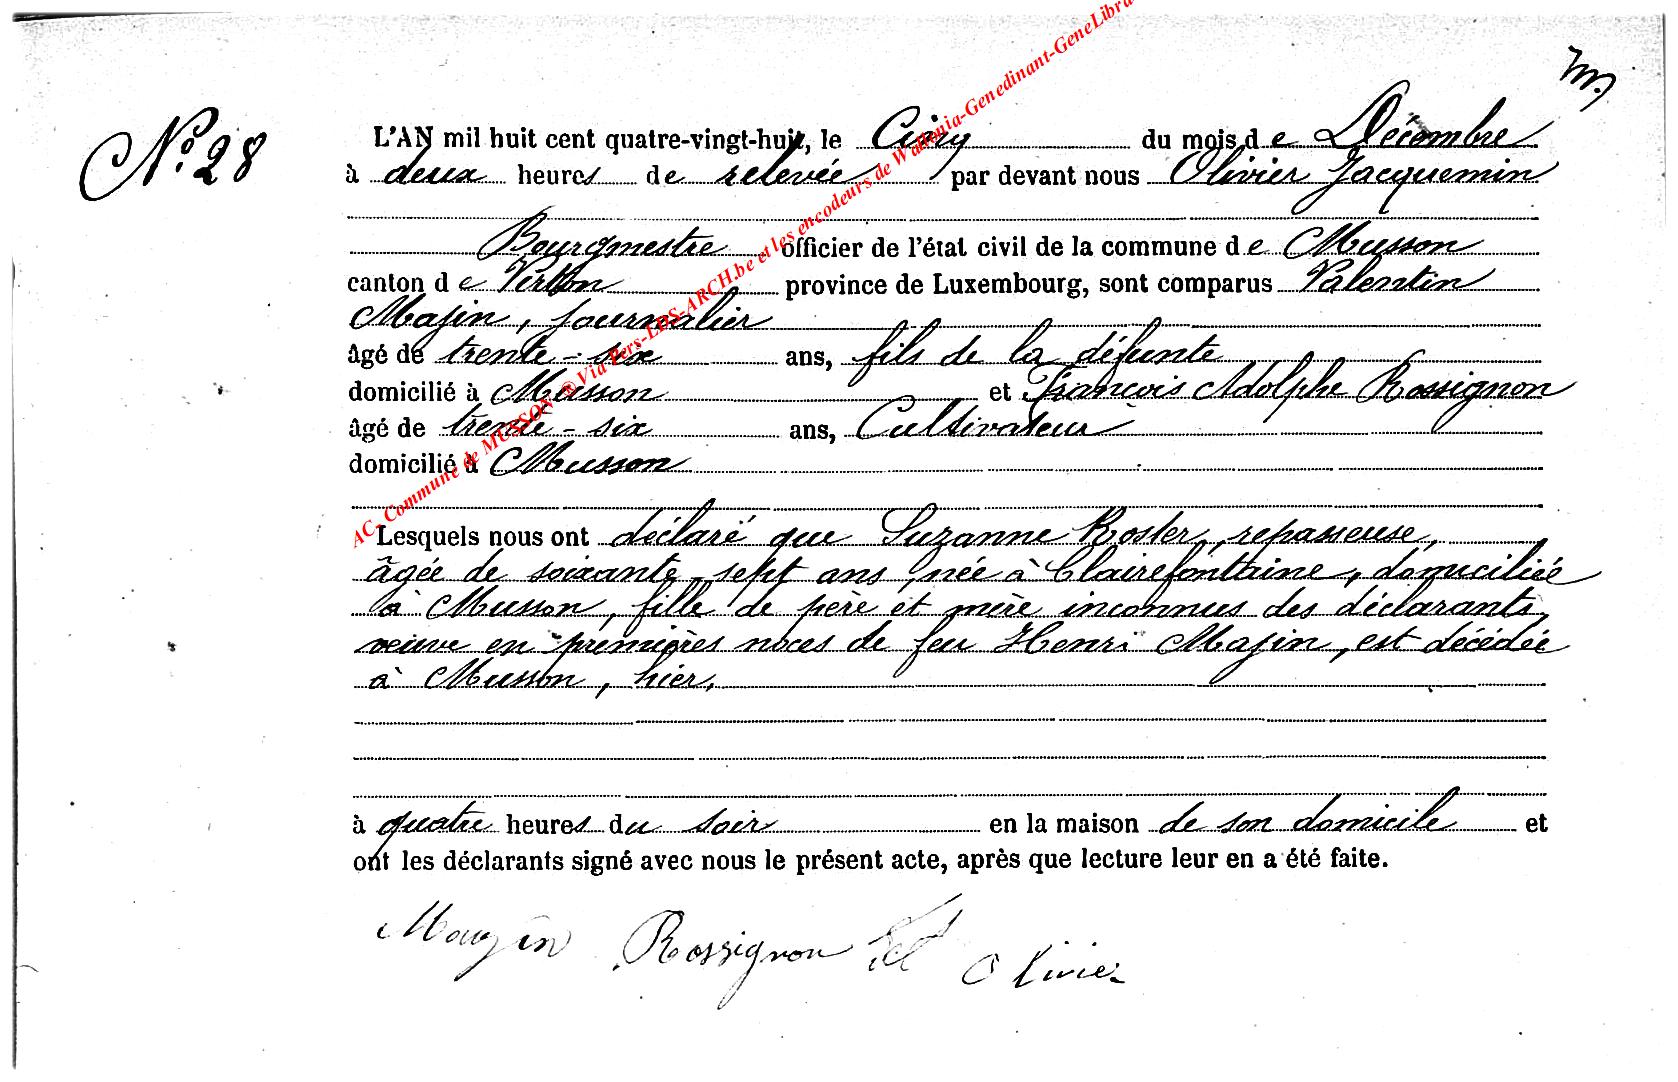 m
N° 28
L'AN mil huit cent quatre-vingt-huit, le Cinq du mois de Décembre
à deux heures de relevée par devant nous Olivier Jacquemin
Bourgmestre officier de l'état civil de la commune de Musson
canton de Virton province de Luxembourg, sont comparus Valentin
Majin, journalier
âgé de trente-six ans, fils de la défunte
domicilié à Musson et François Adolphe Rossignon
âgé de trente-six ans, Cultivateur
domicilié à Musson
Lesquels nous ont déclaré que Suzanne Rosler, repasseuse,
âgée de soixante-sept ans, née à Clairefontaine, domiciliée
à Musson, fille de père et mère inconnus des déclarants,
veuve en premières noces de feu Henri Majin, est décédée
à Musson, hier,
à quatre heures du soir en la maison de son domicile et
ont les déclarants signé avec nous le présent acte, après que lecture leur en a été faite.
Rossignon Olivier
AC- Commune de MUSSON ® Via Pers-LDS-ARCH.be et les encodeurs de Wallonia-Genedinant-GeneLibra